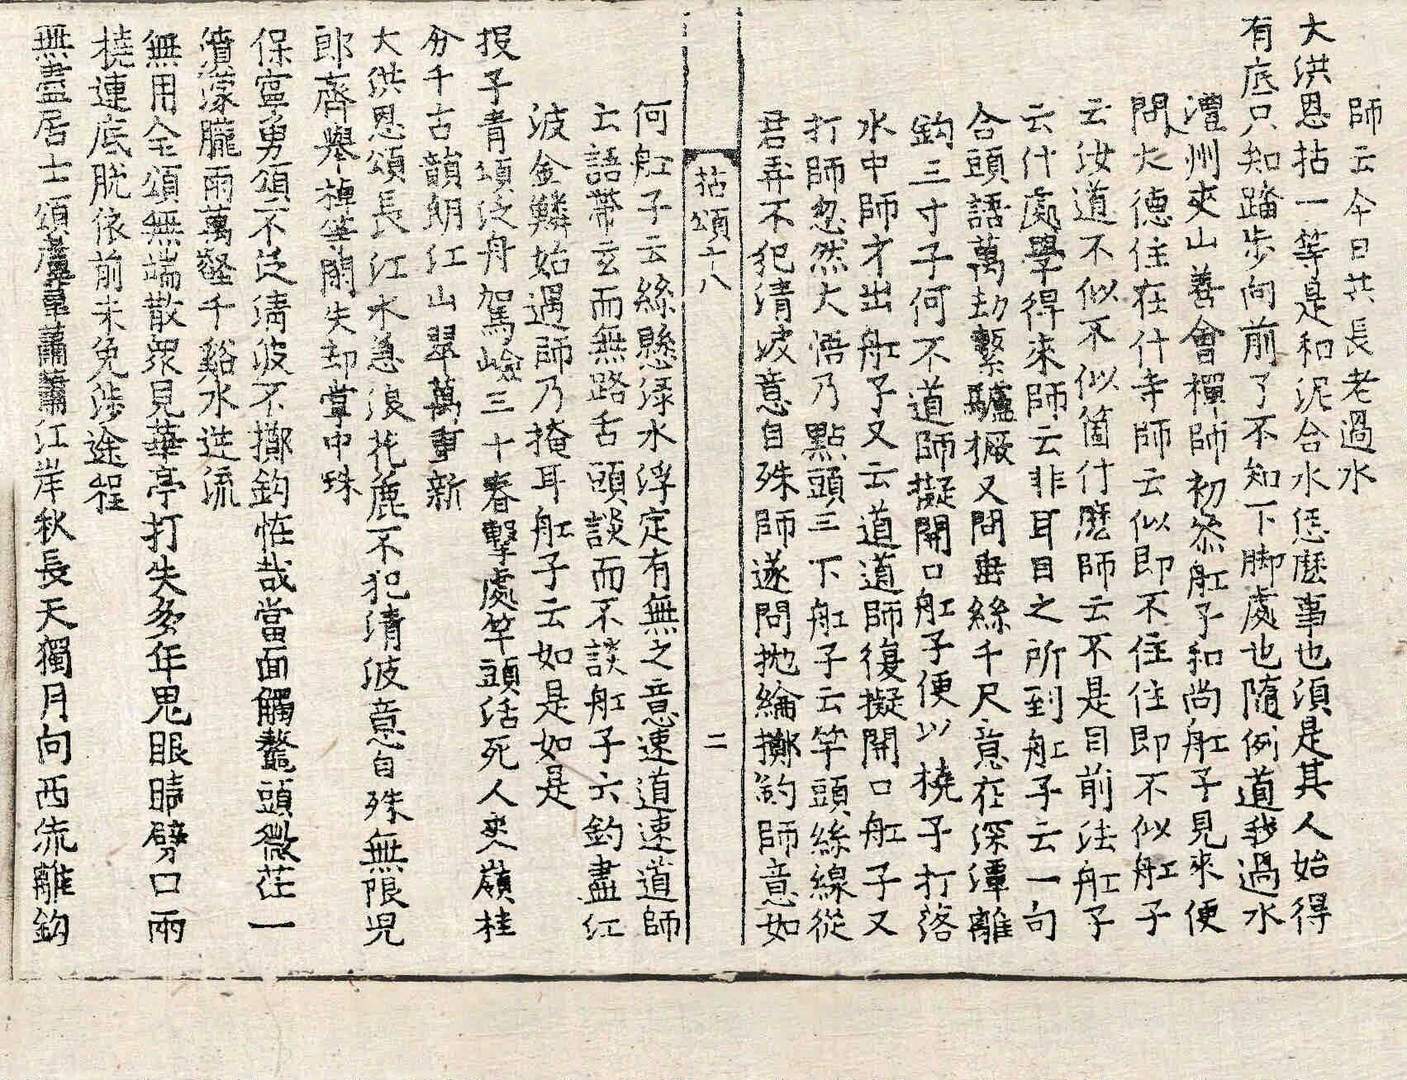 師云今日共長老過水
大洪恩拈一等是和泥合水恁麽事也須是其人始得
有底只知踏步向前了不知下脚處也隨例道我過水
澧州夾山善會禪師初叅舡子和尚舡子見來便
問大德住在什寺師云似即不住住即不似舡子
云汝道不似不似箇什麽師云不是目前法舡子
云什處學得來師云非耳目之所到舡子云一句
合頭語萬劫繫驢橛又問垂絲千尺意在深潭離
鈎三寸子何不道師擬開口舡子便以橈子打落
水中師才出舡子又云道道師復擬開口舡子又
打師忽然大悟乃點頭三下舡子云竿頭絲線從
君弄不犯清波意自殊師遂問抛綸擲釣師意如
拈頌十八
二
何舡子云絲懸淥水浮定有無之意速道速道師
云語帶玄而無路舌頭談而不談舡子云釣盡江
波金鱗始遇師乃掩耳舡子云如是如是
投子青頌泛舟駕險三十春擊處竿頭活死人夾嶺桂
分千古韻朗江山翠萬重新
大洪恩頌長江水急浪花麁不犯清波意自殊無限児
郎齊舉棹等閑失却掌中珠
保寧勇頌不泛清波不擲鈎恠哉當面觸鼇頭微茫一
濆濛朧雨萬壑千谿水迸流
無用全頌無端散衆見華亭打失多年鬼眼睛劈口兩
橈連底脫依前未免涉途程
無盡居士頌蘆葦蕭蕭江岸秋長天獨月向西流離鈎